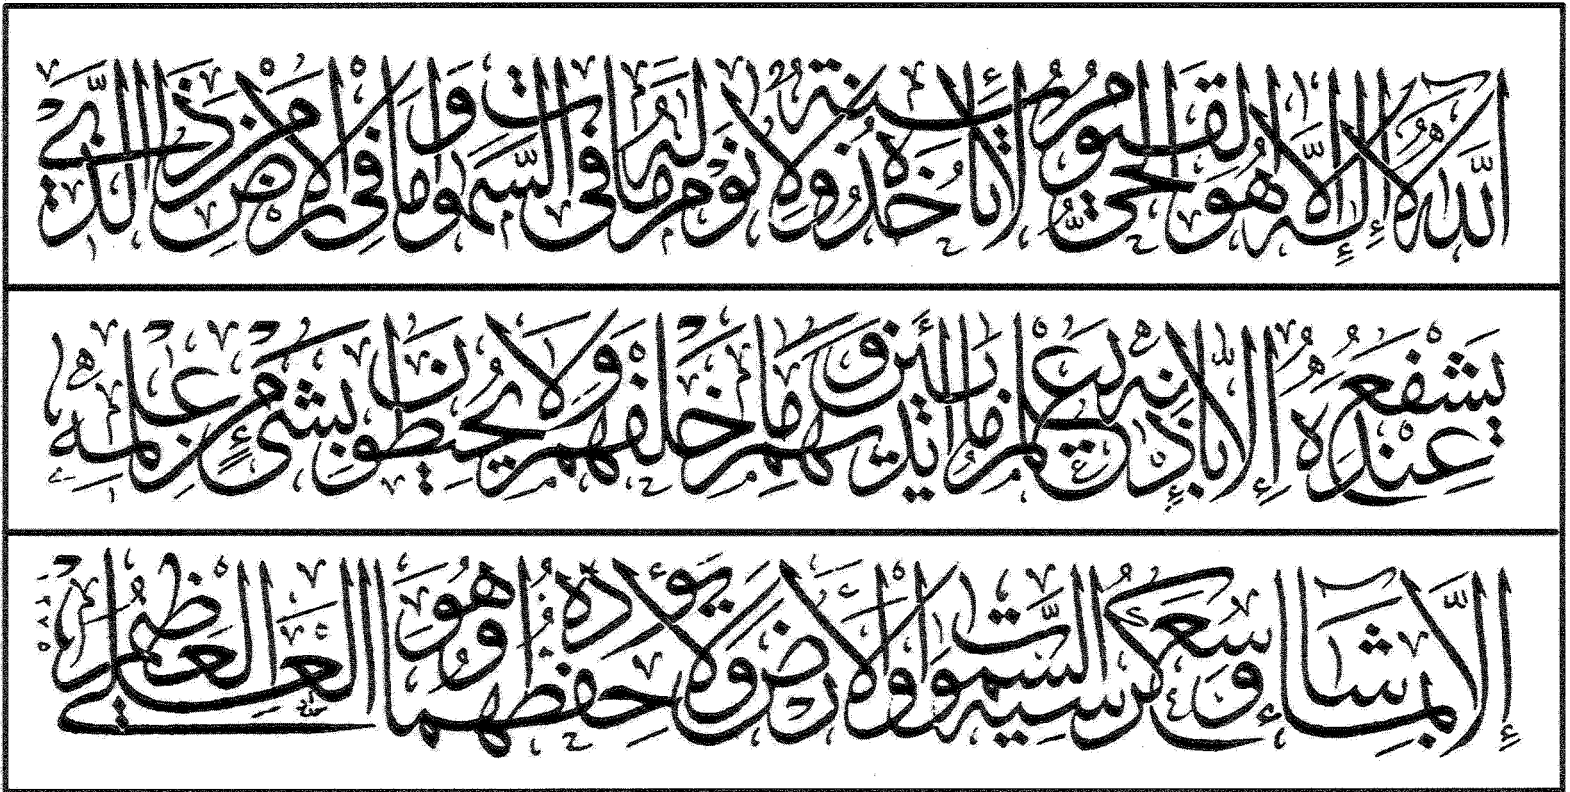 اللَّهُ لَا إِلَٰهَ إِلَّا هُوَ الْحَيُّ الْقَيُّومُ لَا تَأْخُذُهُ سِنَةٌ وَلَا نَوْمٌ لَهُ مَا فِي السَّمَٰوَاتِ وَمَا فِي الْأَرْضِ مَنْ ذَا الَّذِي
يَشْفَعُ عِنْدَهُ إِلَّا بِإِذْنِهِ يَعْلَمُ مَا بَيْنَ أَيْدِيهِمْ وَمَا خَلْفَهُمْ وَلَا يُحِيطُونَ بِشَيْءٍ مِنْ عِلْمِهِ
إِلَّا بِمَا شَاءَ وَسِعَ كُرْسِيُّهُ السَّمَٰوَاتِ وَالْأَرْضَ وَلَا يَئُودُهُ حِفْظُهُمَا وَهُوَ الْعَلِيُّ الْعَظِيمُ